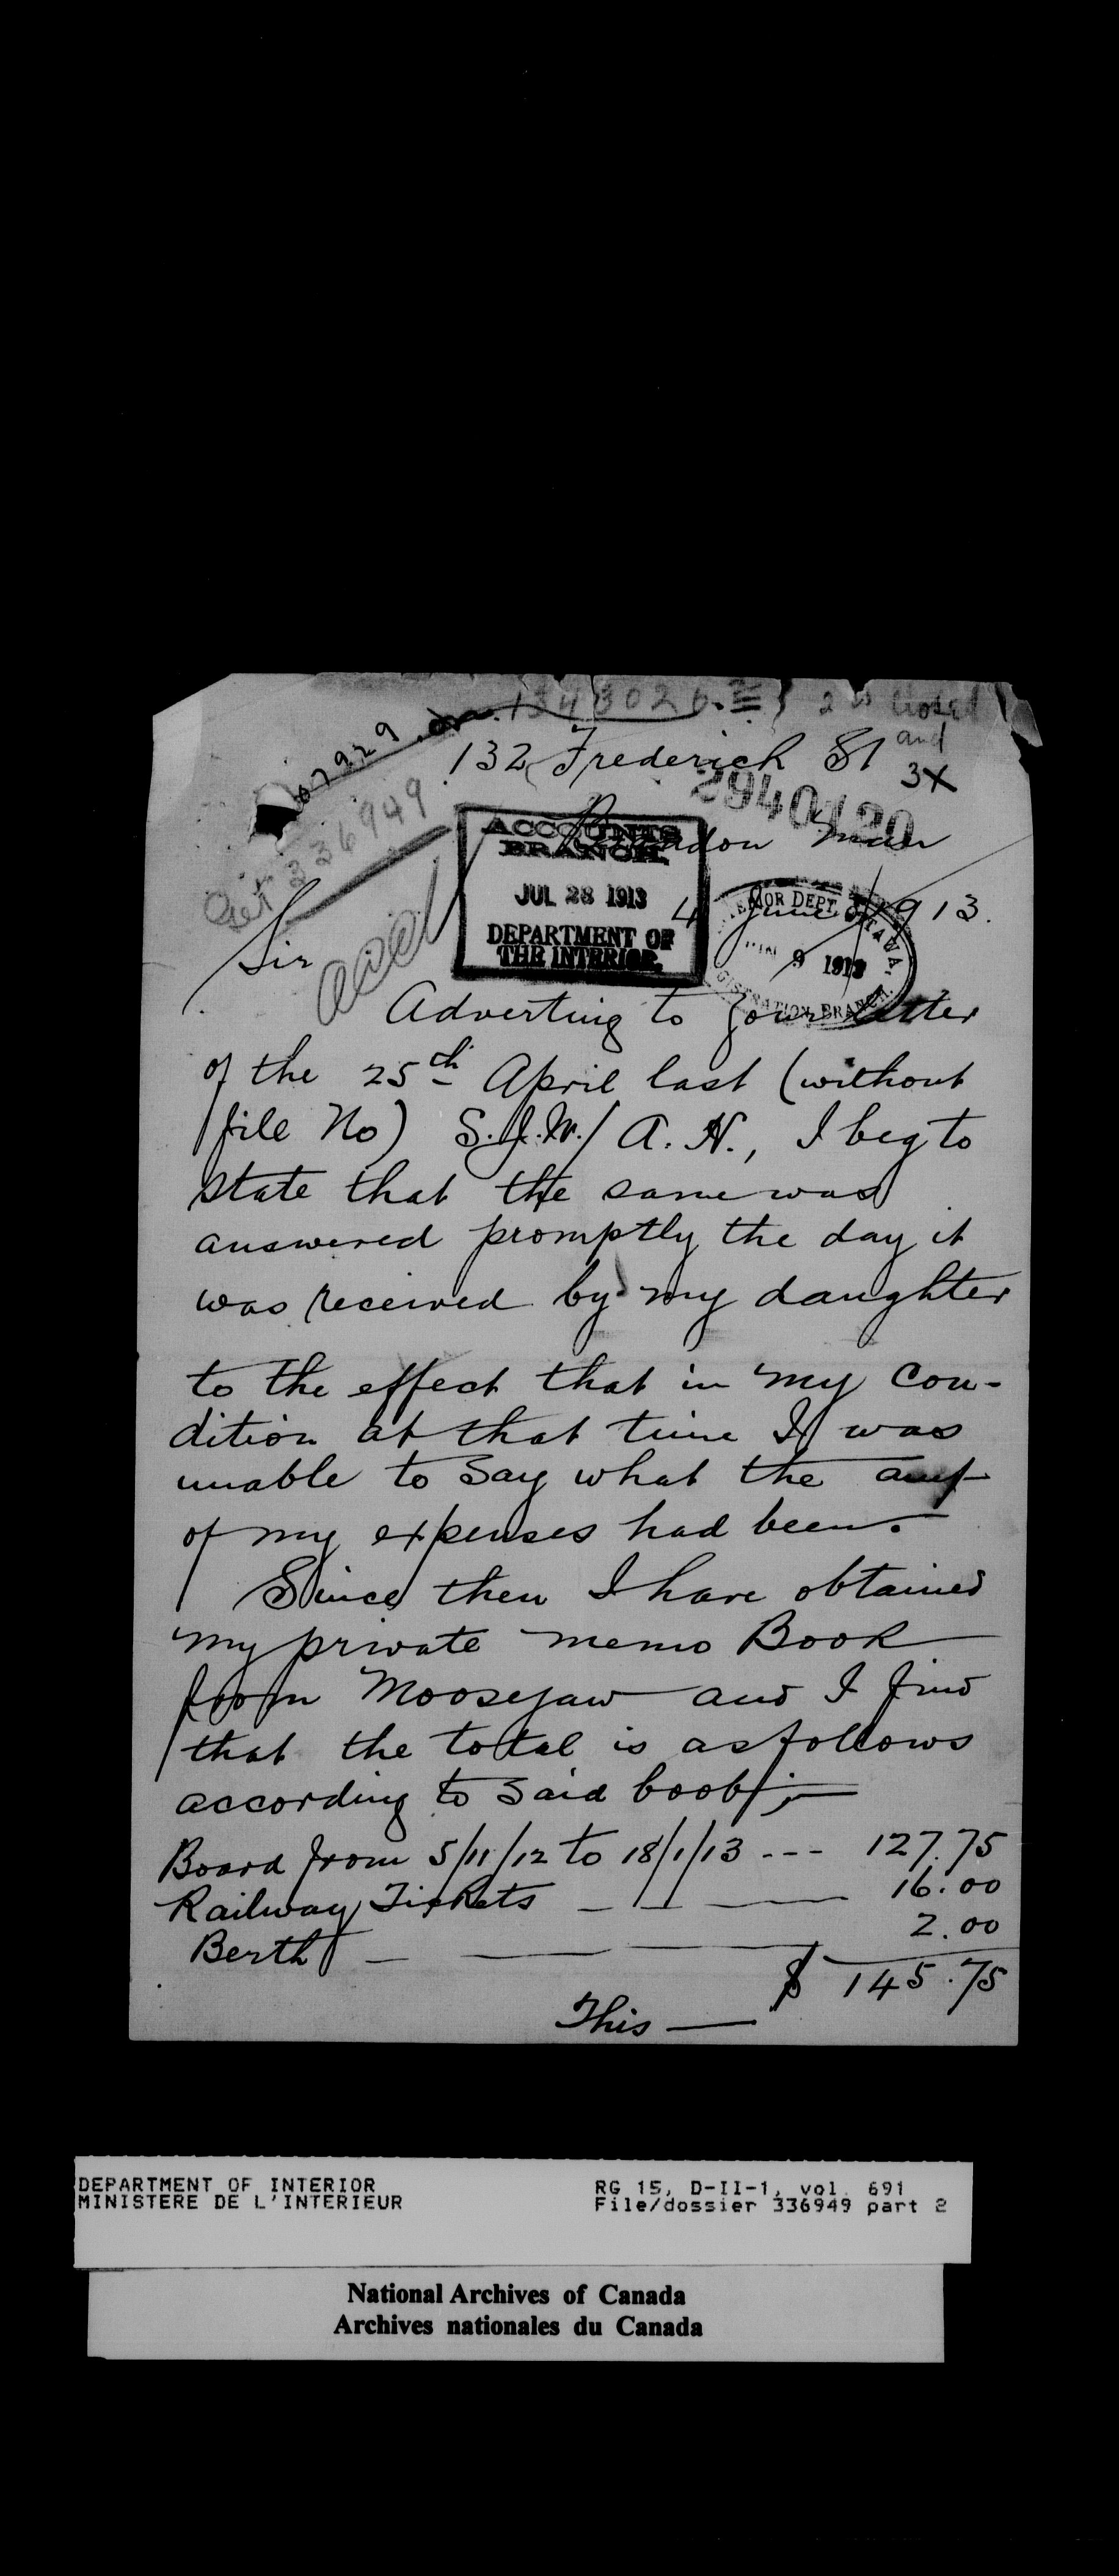 1343026
2
and
3X
07929
336949
132 Frederick St
2940120
Brandon Man
ACCOUNTS
BRANCH.
JUL 28 1913
DEPARTMENT OF
THE INTERIOR.
4 June 1913.
INTERIOR DEPT. OTTAWA.
9 1913
REGISTRATION BRANCH.
Sir
Adverting to your letter
of the 25th April last (without
file No) S.J.W./A.N., I beg to
state that the same was
answered promptly the day it
was received by my daughter
to the effect that in my con-
dition at that time I was
unable to say what the amt
of my expenses had been.
Since then I have obtained
my private memo Book
from Moosejaw and I find
that the total is as follows
according to said book;—
Board from 5/11/12 to 18/1/13 --- 127.75
Railway Tickets — — — 16.00
Berth — — — 2.00
$ 145.75
This —
DEPARTMENT OF INTERIOR
MINISTERE DE L'INTERIEUR
RG 15, D-II-1, vol. 691
File/dossier 336949 part 2
National Archives of Canada
Archives nationales du Canada